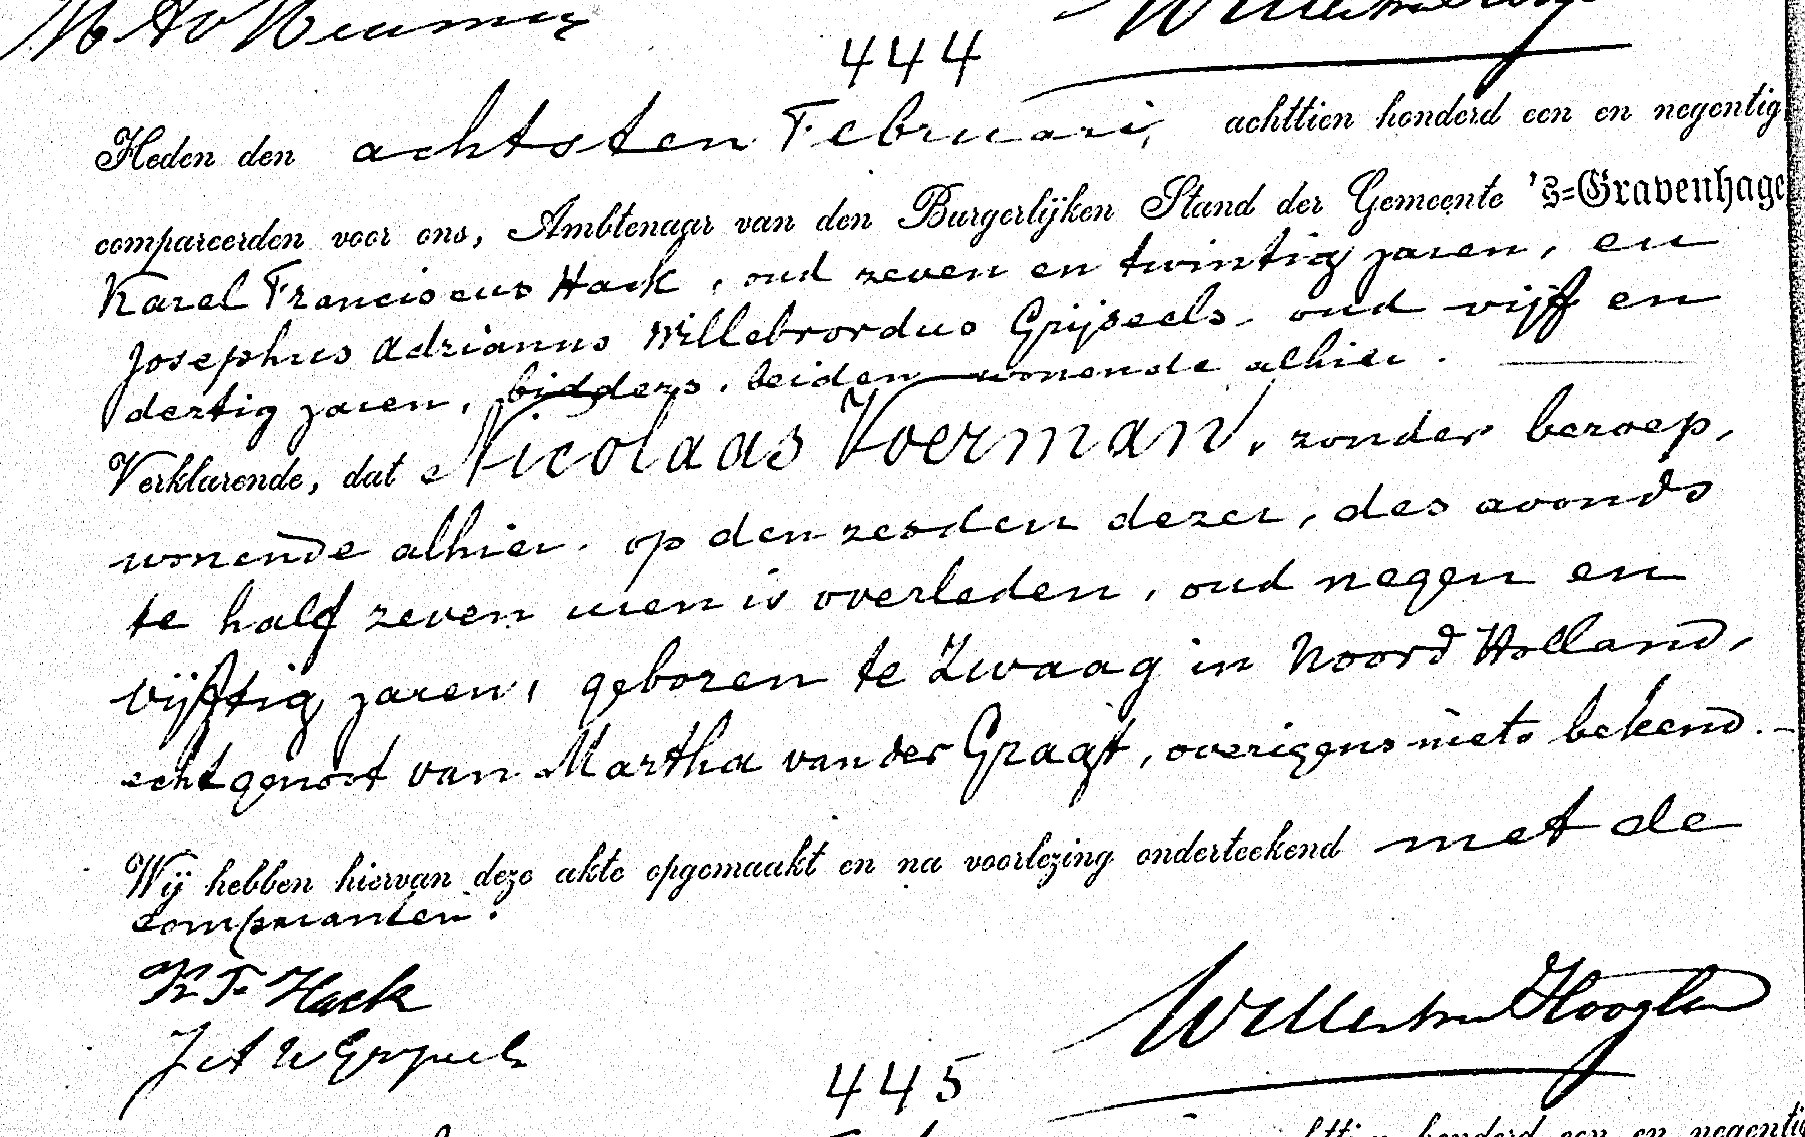 444
Heden den achtsten Februari, achttien honderd een en negentig
compareerden voor ons, Ambtenaar van den Burgerlijken Stand der Gemeente 's=Gravenhage
Karel Franciscus Hack, oud zeven en twintig jaren, en
Josephus Adrianus Willebrordus Grijseels, oud vijf en
dertig jaren, bidders, beiden wonende alhier.
Verklarende, dat Nicolaas Voerman, zonder beroep,
wonende alhier, op den zesden dezer, des avonds
te half zeven uren is overleden, oud negen en
vijftig jaren, geboren te Zwaag in Noord Holland,
echtgenoot van Martha van der Graaft, overigens niets bekend.
Wij hebben hiervan deze akte opgemaakt en na voorlezing onderteekend met de
comparanten.
K F Hack
J A W Grijseels
445
achttien honderd een en negentig